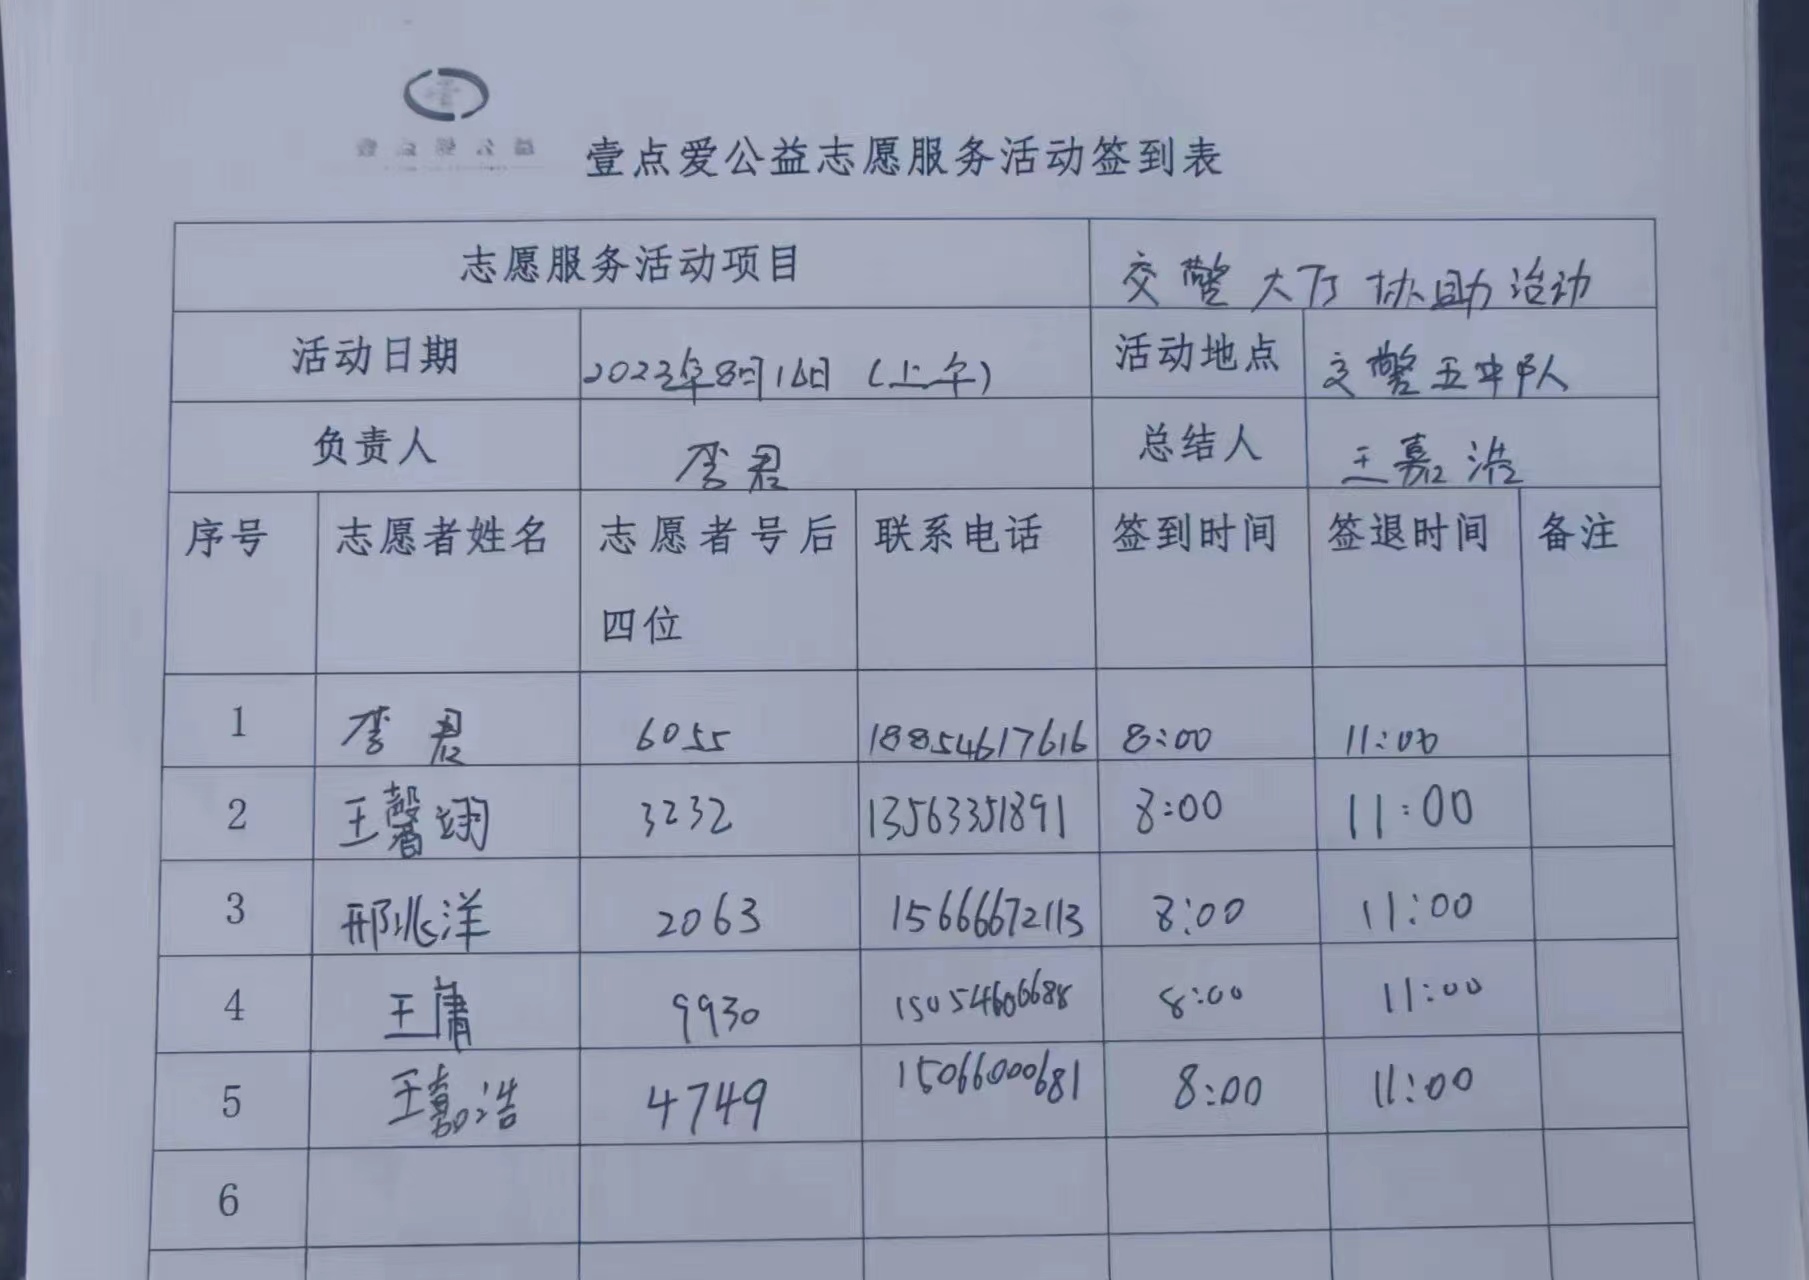 壹点爱公益
壹点爱公益志愿服务活动签到表
志愿服务活动项目 交警大厅协助活动
活动日期 2023年8月16日（上午） 活动地点 交警五中队
负责人 李君 总结人 王嘉浩
序号 志愿者姓名 志愿者号后 联系电话 签到时间 签退时间 备注
四位
1 李君 6055 18854617616 8:00 11:00
2 王馨翊 3232 13563351891 8:00 11:00
3 邢兆洋 2063 15666672113 8:00 11:00
4 王庸 9930 15054606688 8:00 11:00
5 王嘉浩 4749 15066000681 8:00 11:00
6